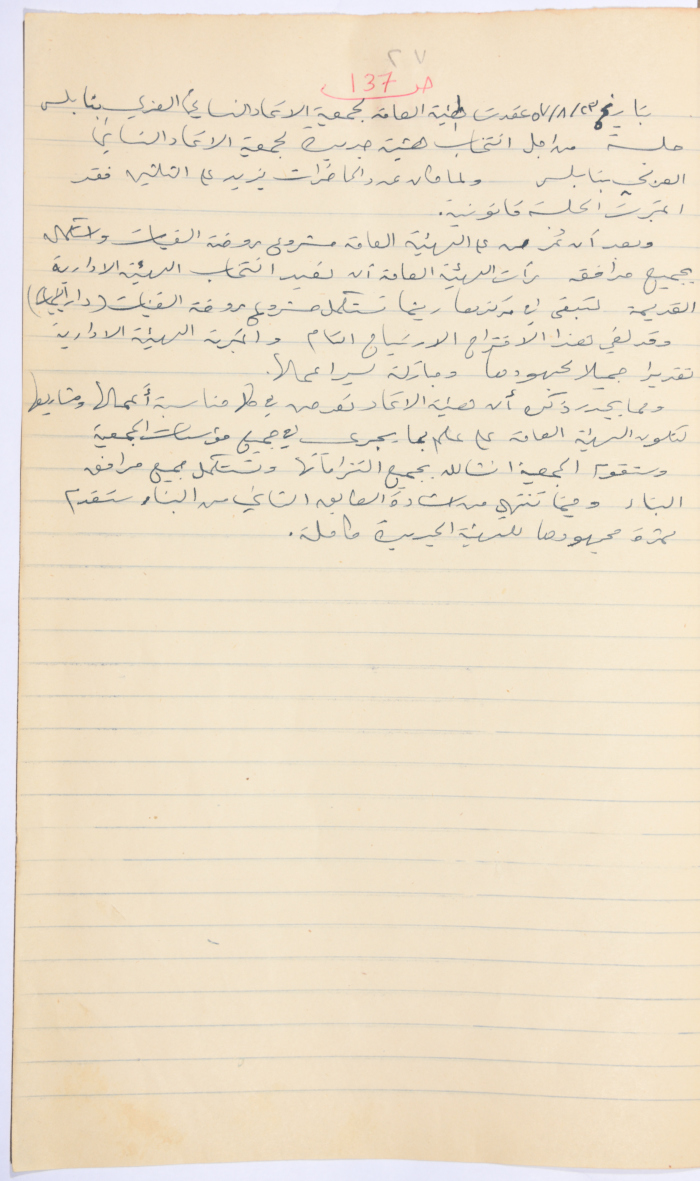 ٢٧
ص 137
بتاريخ ٥٧/٨/٢٣ عقدت الهيئة العامة لجمعية الاتحاد النسائي العربي بنابلس
جلسة من اجل انتخاب هيئة جديدة لجمعية الاتحاد النسائي
العربي بنابلس ولما كان عدد الحاضرات يزيد على الثلثين فقد
اعتبرت الجلسة قانونية.
وبعد أن عرض على الهيئة العامة مشروع روضة الفتيات واستكمال
جميع مرافقه رأت الهيئة العامة أن تعيد انتخاب الهيئة الادارية
القديمة لتبقى في مركزها ريثما تستكمل مشروع روضة الفتيات (دار اليتيمات)
وقد لقي هذا الاقتراح الارتياح التام واعتبرته الهيئة الادارية
تقديرا جميلا لجهودها ومآزرة لسير اعمالها.
ومما يجدر ذكره أن هيئة الاتحاد تعرض في كل مناسبة أعمالها ومشاريعها
لتكون الهيئة العامة على علم بما يجري في جميع مؤسسات الجمعية
وستقوم الجمعية انشالله بجميع التزاماتها وتستكمل جميع مرافق
البناء وحينما تنتهي من اشادة الطابق الثاني من البناء ستقدم
ثمرة مجهودها للهيئة الجديدة كاملة.